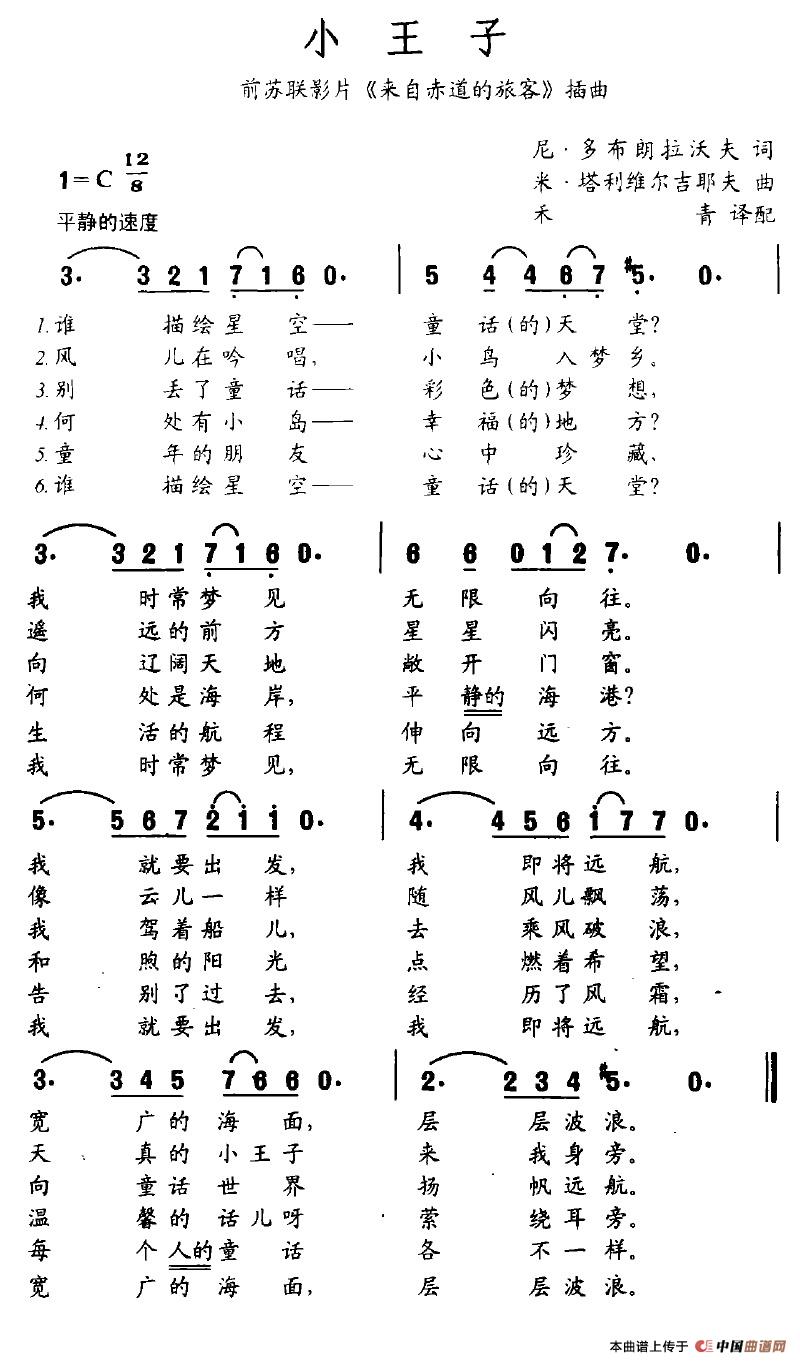 小王子
前苏联影片《来自赤道的旅客》插曲
尼·多布朗拉沃夫 词
1=C 12/8
米·塔利维尔吉耶夫 曲
平静的速度
禾青 译配
3· 3 2 1 7 1 6 0· | 5 4 4 6 7 #5· 0· |
1.谁 描绘星空—— 童话(的)天堂?
2.风 儿在吟唱, 小鸟入梦乡。
3.别 丢了童话—— 彩色(的)梦想,
4.何 处有小岛—— 幸福(的)地方?
5.童 年的朋友 心中珍藏、
6.谁 描绘星空—— 童话(的)天堂?
3· 3 2 1 7 1 6 0· | 6 6 0 1 2 7· 0· |
我 时常梦见 无限向往。
遥 远的前方 星星闪亮。
向 辽阔天地 敞开门窗。
何 处是海岸, 平静的海港?
生 活的航程 伸向远方。
我 时常梦见, 无限向往。
5· 5 6 7 2 1 1 0· | 4· 4 5 6 1 7 7 0· |
我 就要出发, 我 即将远航,
像 云儿一样 随 风儿飘荡,
我 驾着船儿, 去 乘风破浪,
和 煦的阳光 点 燃着希望,
告 别了过去, 经 历了风霜,
我 就要出发, 我 即将远航,
3· 3 4 5 7 6 6 0· | 2· 2 3 4 #5· 0· ‖
宽 广的海面, 层 层波浪。
天 真的小王子 来 我身旁。
向 童话世界 扬 帆远航。
温 馨的话儿呀 萦 绕耳旁。
每 个人的童话 各 不一样。
宽 广的海面, 层 层波浪。
本曲谱上传于 中国曲谱网